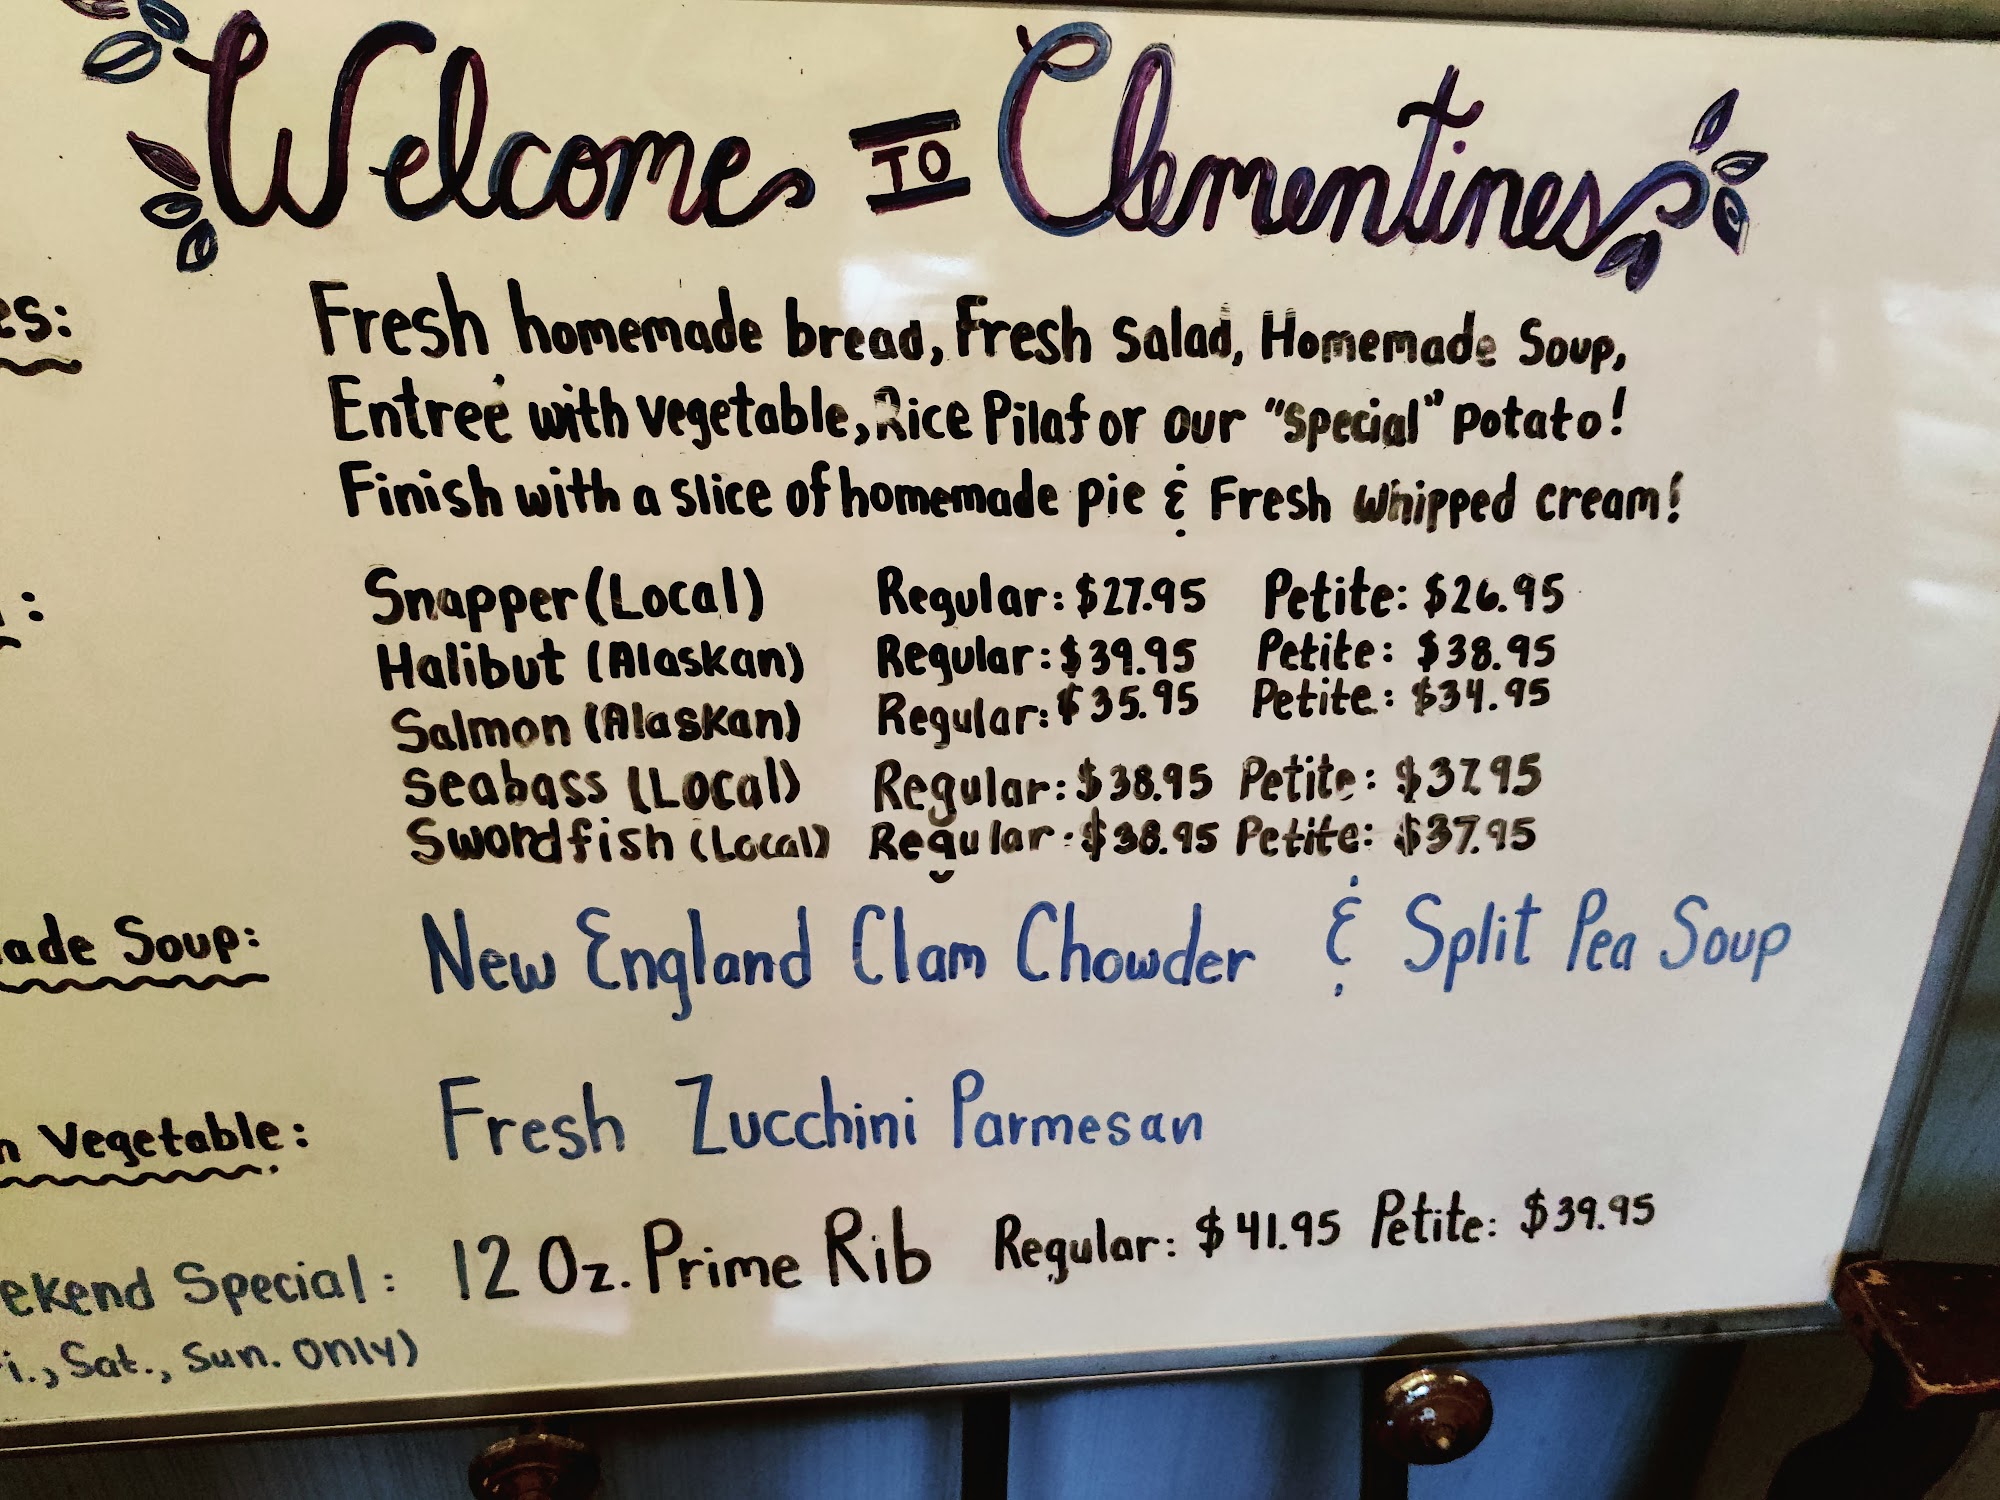 Welcome TO Clementines
es: Fresh homemade bread, Fresh Salad, Homemade Soup,
Entreé with vegetable, Rice Pilaf or our "Special" Potato!
Finish with a slice of homemade pie & Fresh whipped cream!
: Snapper (Local) Regular: $27.95 Petite: $26.95
Halibut (Alaskan) Regular: $39.95 Petite: $38.95
Salmon (Alaskan) Regular: $35.95 Petite: $34.95
Seabass (Local) Regular: $38.95 Petite: $37.95
Swordfish (Local) Regular: $38.95 Petite: $37.95
ade Soup: New England Clam Chowder & Split Pea Soup
n Vegetable: Fresh Zucchini Parmesan
ekend Special: 12 Oz. Prime Rib Regular: $41.95 Petite: $39.95
i., Sat., Sun. Only)